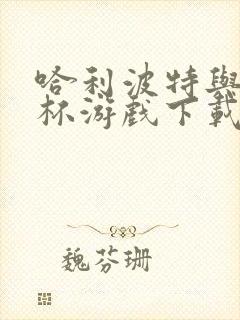 哈利波特與
杯游戲下載
魏芬珊